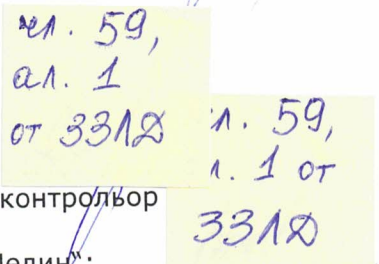 чл. 59,
ал. 1
от ЗЗЛД
л. 59,
л. 1 от
ЗЗЛД
контрольор